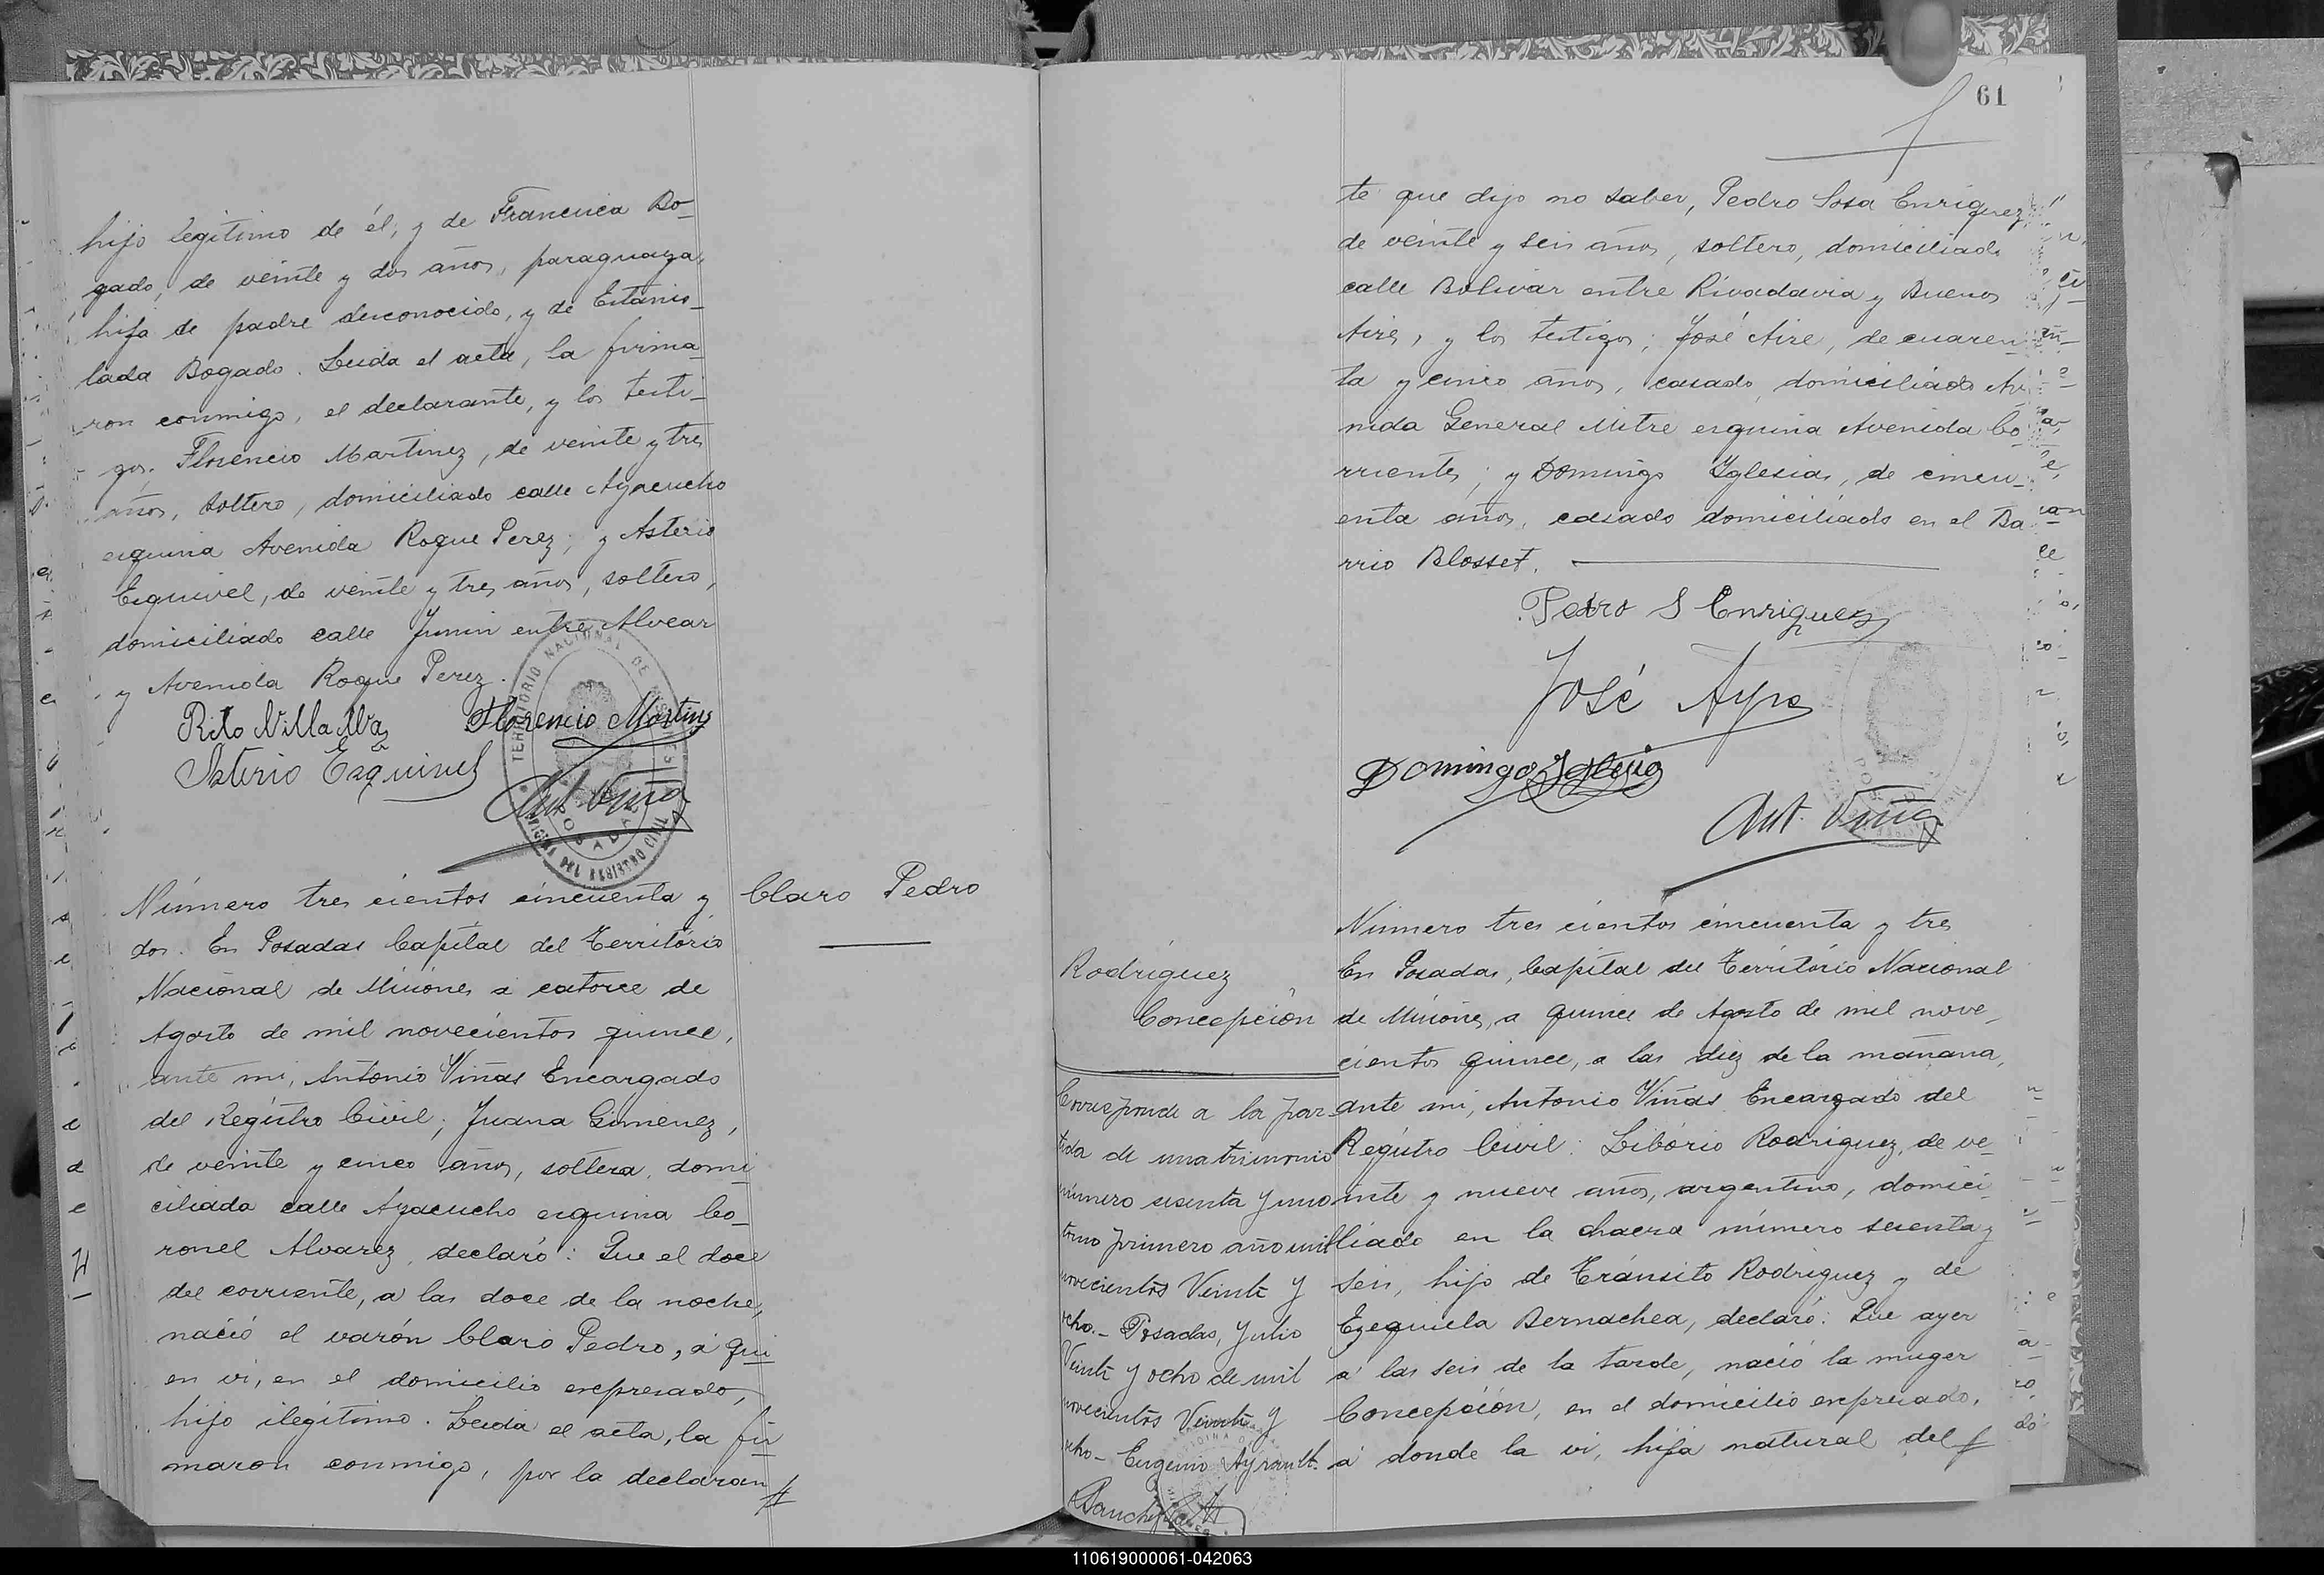 hijo legítimo de él, y de Francisca Bo-
gado, de veinte y dos años, paraguaya,
hija de padre desconocido, y de Estanis-
lada Bogado. Leida el acta, la firma-
ron conmigo, el declarante, y los testi-
gos. Florencio Martinez, de veinte y tres
años, soltero, domiciliado calle Ayacucho
esquina Avenida Roque Perez; y Asterio
Esquivel, de veinte y tres años, soltero,
domiciliado calle Junin entre Alvear
y Avenida Roque Perez.
Rito Villa Alva Florencio Martinz
Asterio Esquivel
Ant. Viñas
TERRITORIO NACIONAL DE MISIONES
OFICINA DEL REGISTRO CIVIL
POSADAS
Número tres cientos cincuenta y
dos. En Posadas Capital del Território
Nacional de Misiones a catorce de
Agosto de mil novecientos quince,
ante mi, Antonio Viñas Encargado
del Registro Civil; Juana Gimenez,
de veinte y cinco años, soltera, domi-
ciliada calle Ayacucho esquina Co-
ronel Alvarez, declaró: Que el doce
del corriente, a las doce de la noche,
nació el varón Claro Pedro, á qui
en vi, en el domicilio expresado,
hijo ilegítimo. Leida el acta, la fir
maron conmigo, por la declaran
Claro Pedro
61
te que dijo no saber, Pedro Sosa Enriquez,
de veinte y seis años, soltero, domiciliado
calle Bolivar entre Rivadavia y Buenos
Aires, y los testigos; José Aire, de cuaren
ta y cinco años, casado, domiciliado Av
nida General Mitre esquina Avenida Co
rrientes; y Domingo Yglesias, de cincu-
enta años, casado domiciliado en el Ba
rrio Blosset.
Pedro S Enriquez
José Ayre
Domingo Iglesia
Ant. Viñas
Rodriguez
Concepción
Número tres cientos cincuenta y tres
En Posadas, Capital del Território Nacional
de Misiones, a quince de Agosto de mil nove-
cientos quince, a las diez de la mañana,
ante mi, Antonio Viñas Encargado del
Registro Civil: Libório Rodriguez, de ve-
inte y nueve años, argentino, domici-
liado en la chacra número sesenta y
seis, hijo de Tránsito Rodriguez y de
Ezequiela Bernachea, declaró: Que ayer
á las seis de la tarde, nació la muger
Concepción, en el domicilio expresado,
á donde la vi, hija natural del
Corresponde a la par-
tida de matrimonio
número sesenta y uno
tomo primero año mil
novecientos Veinte y
ocho.- Posadas, Julio
Veinte y ocho de mil
novecientos Veinte y
ocho- Eugenio Ayrault.
110619000061-042063